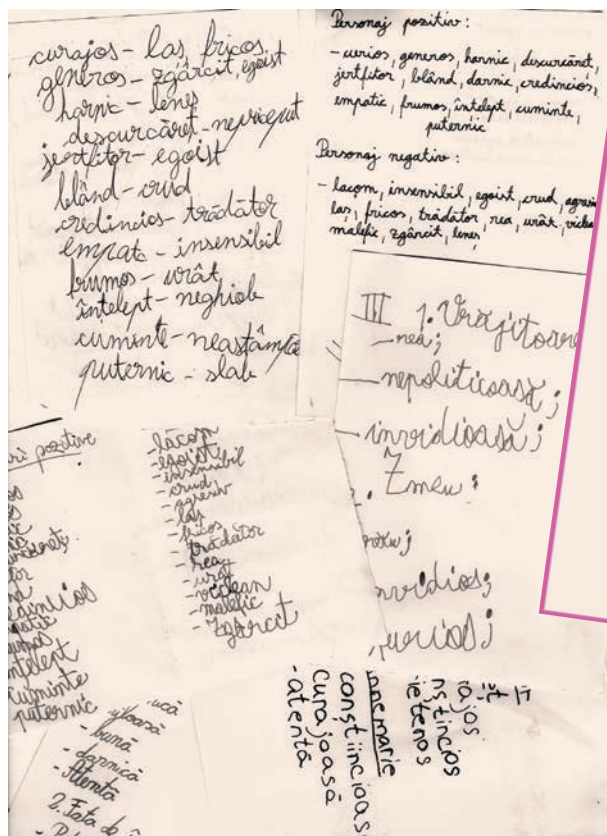 curajos - las, fricos
generos - zgârcit, egoist
harnic - lenes
descurcăret - nepriceput
jertfitor - egoist
blând - crud
credincios - trădător
empatc - insensibil
frumos - urât
întelept - neghiob
cuminte - neastâmpă
puternic - slab
Personaj pozitiv:
- curios, generos, harnic, descurcăret,
jertfitor, blând, darnic, credincios,
empatic, frumos, întelept, cuminte,
puternic
Personaj negativ:
- lacom, insensibil, egoist, crud, agresi
las, fricos, trădător, rea, urât, viclea
malefic, zgârcit, lenes
III 1. Vrăjitoare
- rea;
- nepoliticoasă;
- invidioasă;
Zmeu:
nvidios;
urios;
pozitive
întelept
cuminte
puternic
- lăcom
- egoist
- insensibil
- crud
- agresiv
- las
- fricos
- trădător
- rea
- urât
- viclean
- malefic
- zgârcit
- bună
- darnică
- Atentă
2. Fata
rajos
nstincios
ietenos
nnemarie
conștiincioas
Curajoasă
- atentă